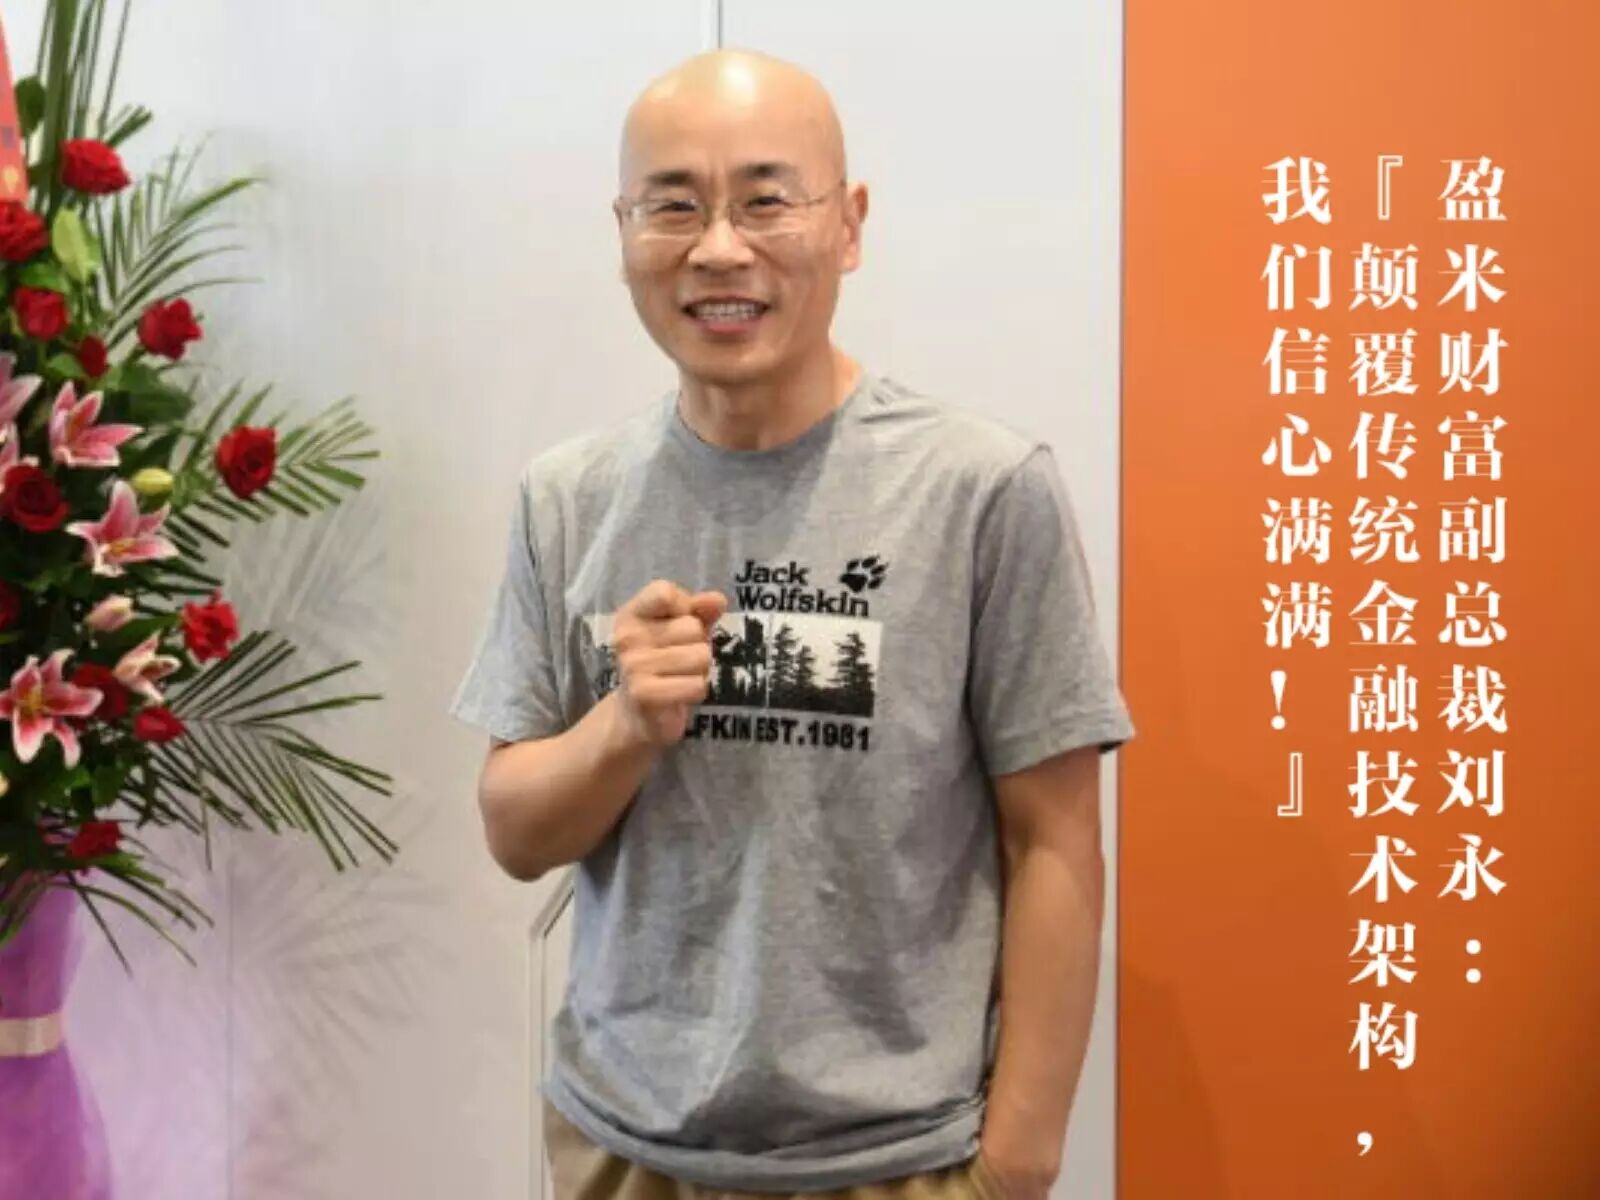 盈米财富副总裁刘永：
『颠覆传统金融技术架构，
我们信心满满！』
Jack
Wolfskin
LFKIN EST.1981